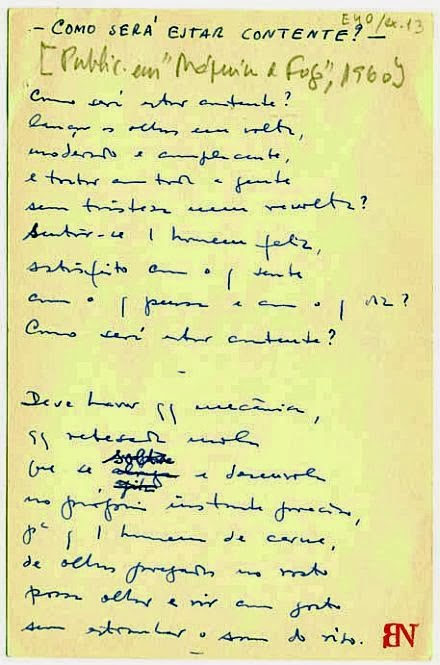 E40/cx.13
— COMO SERÁ ESTAR CONTENTE? —
[Public. em "Máquina de Fogo", 1960]
Como será estar contente?
lançar os olhos em volta,
moderado e complacente,
e tratar com toda a gente
sem tristeza nem revolta?
Sentir-se 1 homem feliz,
satisfeito com o q sente
com o q pensa e com o q diz?
Como será estar contente?
Deve haver qq mecânica,
qq rebeca mola
que se solta e desenvola
no próprio instante preciso,
pª q 1 homem de carne,
de olhos pregados no rosto
possa olhar e rir com gosto
sem estranhar o som do riso.
BN